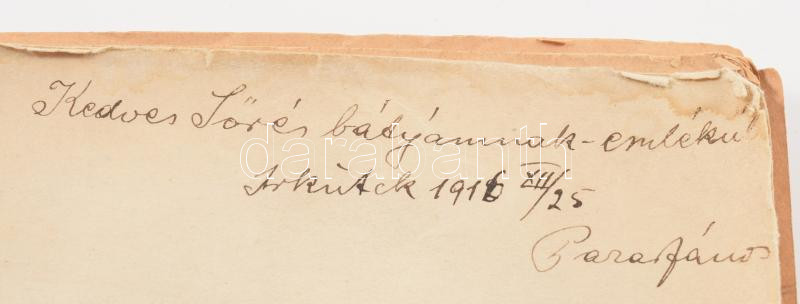 Kedves Sörés bátyámnak - emlékül
Irkutck 1916 XII/25
Paras János
darabanth